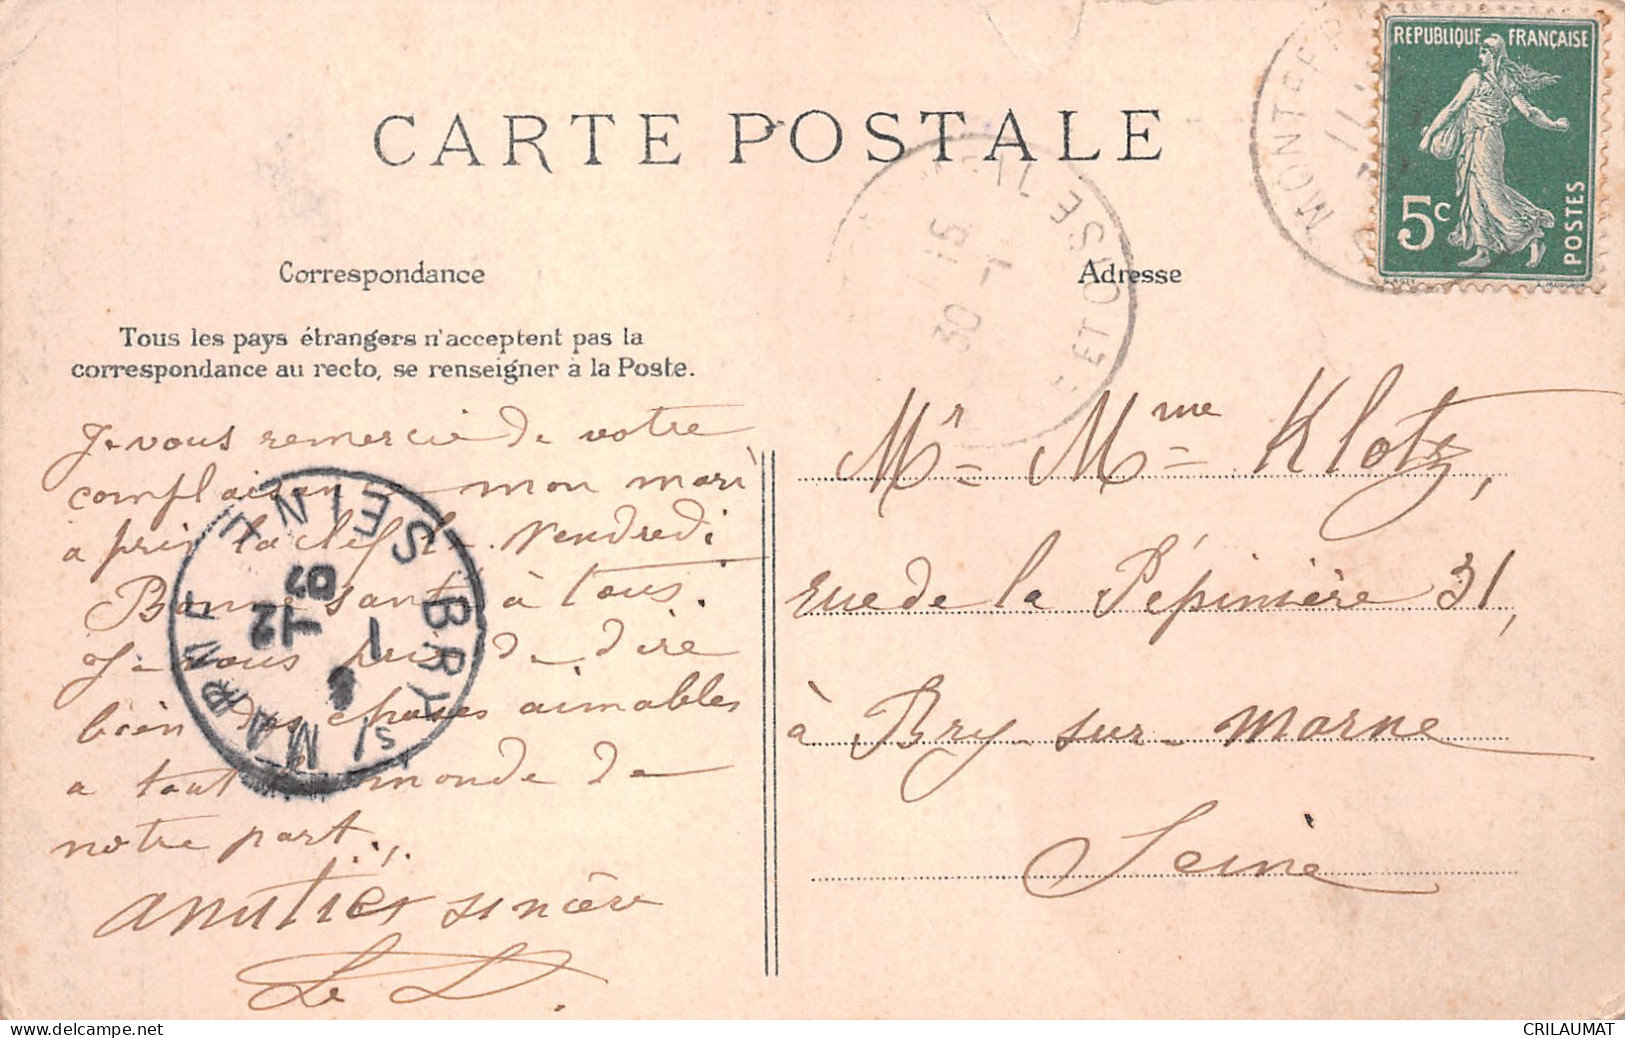 CARTE POSTALE
REPUBLIQUE FRANÇAISE
5c
POSTES
Correspondance
Adresse
Tous les pays étrangers n'acceptent pas la
correspondance au recto, se renseigner à la Poste.
Je vous remercie de votre
mon mari
a pris la clef Vendredi
Bonne santé à tous.
Je vous prie de dire
bien des choses aimables
a tout le monde de
notre part.
amitiés sincère
Le D.
Mr Mme Klotz,
rue de la Pépinière 31,
à Bry-sur-Marne
Seine
BRY S/ MARNE SEINE
6
1
-12
07
ET OISE
15
30 -1
MONTFER
CRILAUMAT